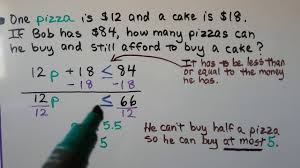 One pizza is $12 and a cake is $18.
IF Bob has $84, how many pizzas can
he buy and still afford to buy a cake?
12p + 18 ≤ 84
- 18 - 18
12p ≤ 66
12 12
5.5
5
It has to be less than
or equal to the money he
has.
He can't buy half a pizza
so he can buy at most 5.